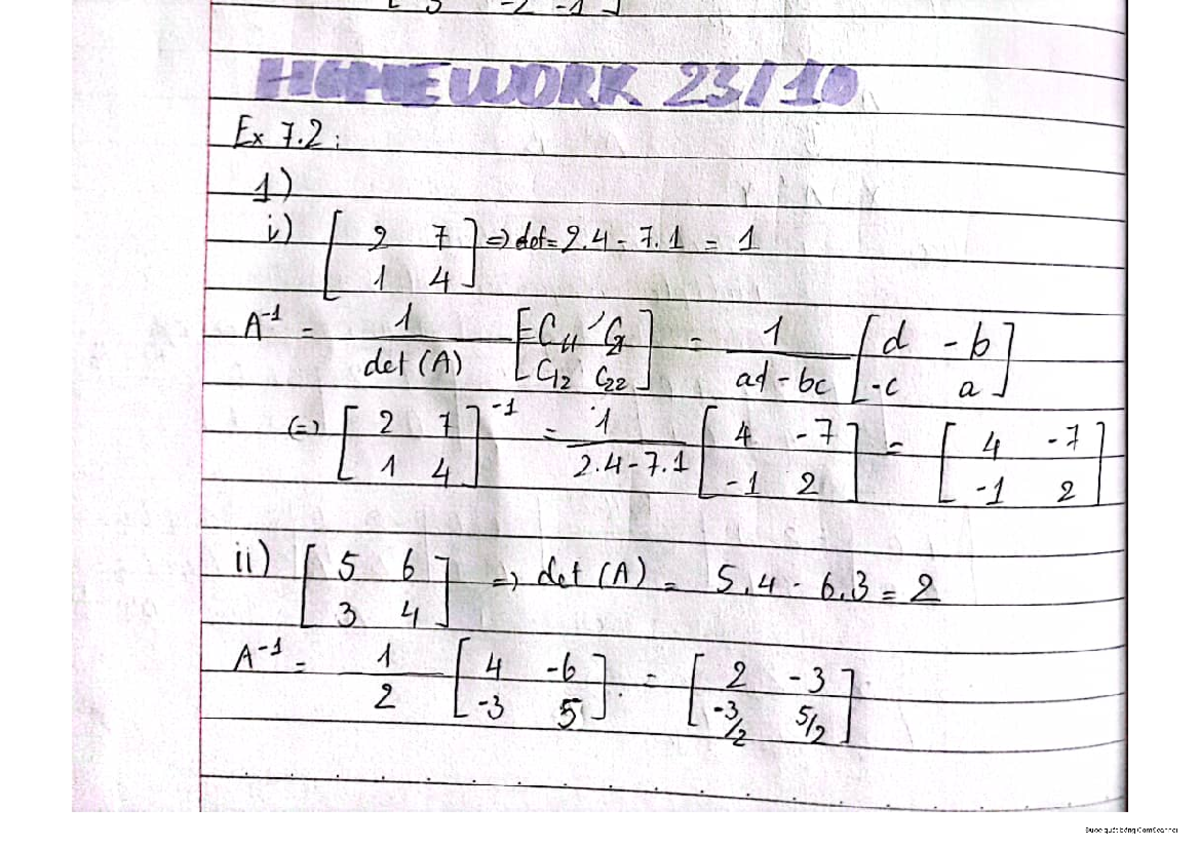 [ 3 -2 -1 ]
HOMEWORK 23/10
Ex 7.2:
1)
i) [ 2 7 ; 1 4 ] => det = 2.4 - 7.1 = 1
A⁻¹ = 1 / det (A) [ C₁₁ C₂₁ ; C₁₂ C₂₂ ] = 1 / ad - bc [ d -b ; -c a ]
(=) [ 2 7 ; 1 4 ]⁻¹ = 1 / 2.4 - 7.1 [ 4 -7 ; -1 2 ] = [ 4 -7 ; -1 2 ]
ii) [ 5 6 ; 3 4 ] => det (A) = 5.4 - 6.3 = 2
A⁻¹ = 1 / 2 [ 4 -6 ; -3 5 ] = [ 2 -3 ; -3/2 5/2 ]
Được quét bằng CamScanner